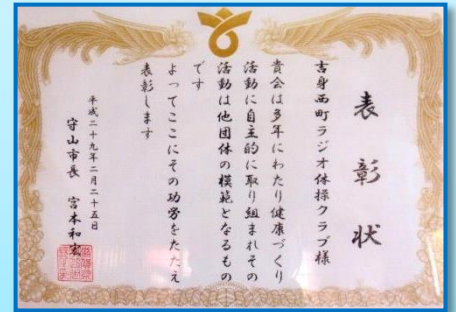 表彰状
吉身西町ラジオ体操クラブ様
貴会は多年にわたり健康づくり
活動に自主的に取り組まれその
活動は他団体の模範となるもの
です
よってここにその功労をたたえ
表彰します
平成二十九年二月二十五日
守山市長 宮本和宏